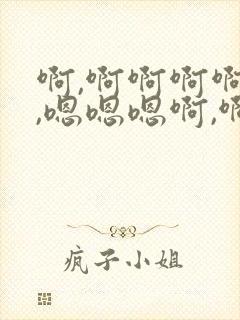 啊,啊啊啊啊
,嗯嗯嗯啊,啊
疯子小姐